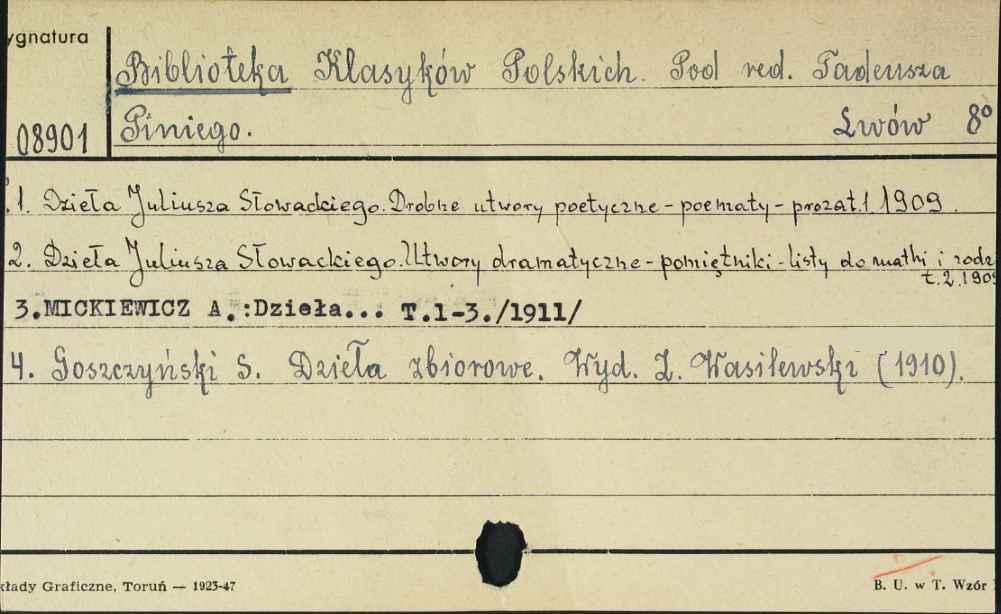 ygnatura
Biblioteka Klasyków Polskich. Pod red. Tadeusza
08901
Piniego. Lwów 8°
.1. Dzieła Juliusza Słowackiego. Drobne utwory poetyczne - poematy - proza t.1 1909.
2. Dzieła Juliusza Słowackiego. Utwory dramatyczne - pomiętniki - listy do matki i rodz
t.2.1909
3.MICKIEWICZ A.:Dzieła... T.1-3./1911/
4. Goszczyński S. Dzieła zbiorowe. Wyd. Z. Wasilewski (1910).
kłady Graficzne, Toruń — 1923-47
B. U. w T. Wzór